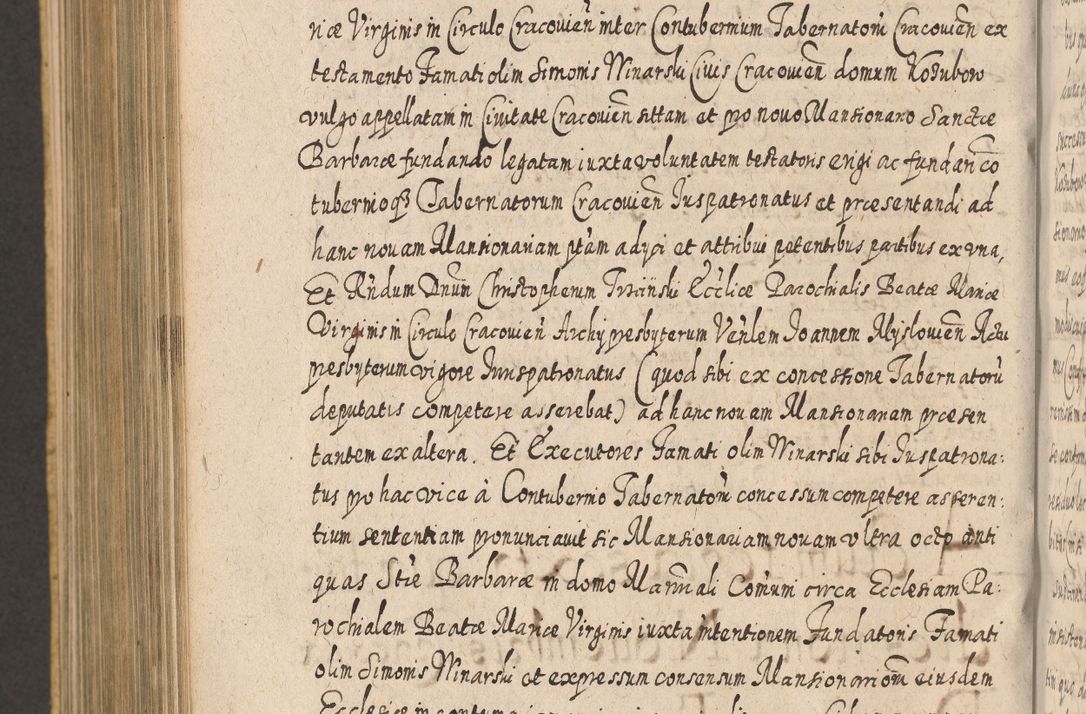 ricæ Virginis in Circulo Cracouien̄ inter Contubernium Tabernatorū Cracouien̄ ex
testamento Famati olim Simonis Winarski Ciuis Cracouien̄ domum Koszubow
vulgo appellatam in Ciuitate Cracouien̄ sittam et pro nouo Mansionario Sanctæ
Barbaræ fundando legatam iuxta voluntatem testatoris erigi ac fundan̄ cō
tubernioq3 Tabernatorum Cracouien̄ Iuspatronatus et præsentandi ad
hanc nouam Mansionariam ptam adyci et attribui petentibus partibus ex vna,
Et Rn̄dum Dnum̄ Christopherum Trzciński Ecclicæ Parochialis Beatæ Mariæ
Virginis in Circulo Cracouien̄ Archypresbyterum Ven̄lem Ioannem Myslouien̄ Actu
presbyterum vigore Iurispatronatus (quod sibi ex concessione Tabernatorū
deputatis competere asserebat) ad hanc nouam Mansionariam præsen
tantem ex altera. Et Executores Famati olim Winarski sibi Iuspatrona:
tus pro hac vice à Contubernio Tabernatorū concessum competere asseren:
tium sententiam pronunciauit sic Mansionariam nouam vltra octo anti
quas Stæ Barbaræ in domo Man̄uali Com̄uni circa Ecclesiam Pa:
rochialem Beatæ Mariæ Virginis iuxta intentionem Fundatoris Famati
olim Simonis Winarski et expressum consensum Mansionariorū eiusdem